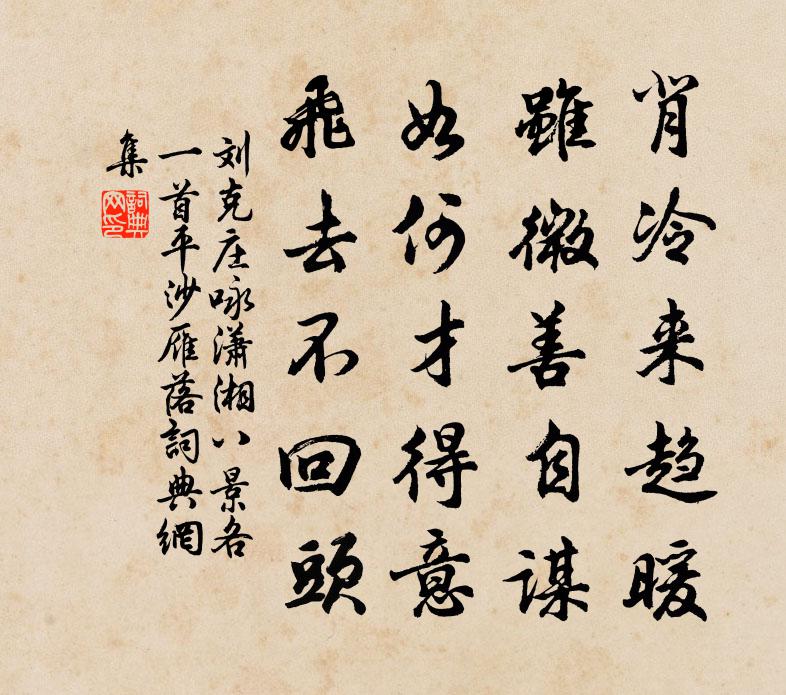 背冷来趋暖
雖微善自謀
如何才得意
飛去不回頭
刘克庄咏瀟湘八景各
一首平沙雁落詞典網
集
詞典
网印